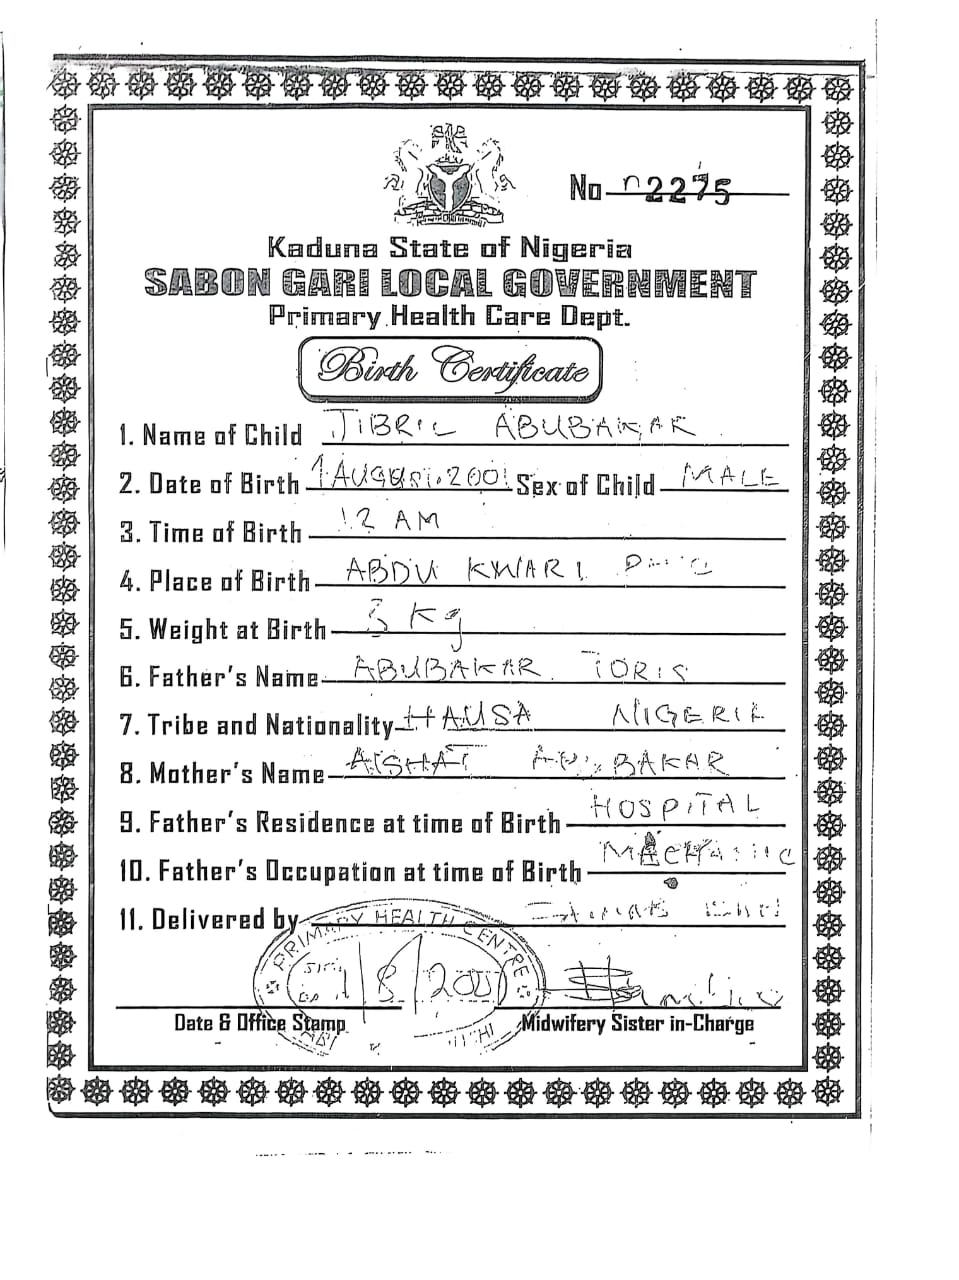 No 02275
Kaduna State of Nigeria
SABON GARI LOCAL GOVERNMENT
Primary Health Care Dept.
Birth Certificate
1. Name of Child JIBRIL ABUBAKAR
2. Date of Birth 1 AUGUST. 2001 Sex of Child MALE
3. Time of Birth 12 AM
4. Place of Birth ABDU KWARI
5. Weight at Birth 3 Kg
6. Father's Name ABUBAKAR
7. Tribe and Nationality HAUSA NIGERIA
8. Mother's Name AISHAT ABUBAKAR
9. Father's Residence at time of Birth HOSPITAL
10. Father's Occupation at time of Birth
11. Delivered by
PRIMARY HEALTH CENTRE
1/8/2001
Date & Office Stamp Midwifery Sister in-Charge